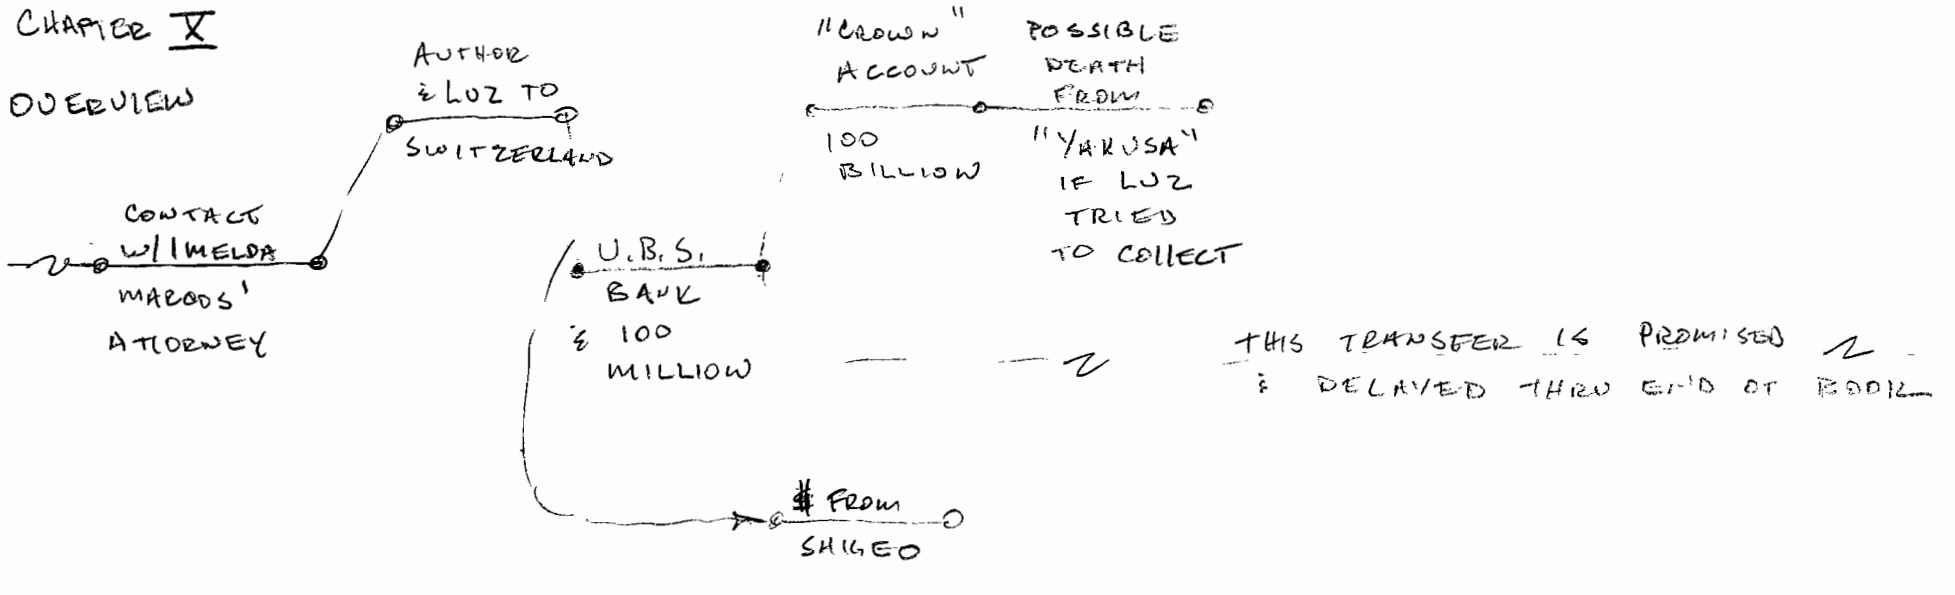 CHAPTER X
OVERVIEW
CONTACT
W/ IMELDA
MARCOS'
ATTORNEY
AUTHOR
& LUZ TO
SWITZERLAND
U.B.S.
BANK
& 100
MILLION
"CROWN"
ACCOUNT
100
BILLION
POSSIBLE
DEATH
FROM
"YAKUSA"
IF LUZ
TRIED
TO COLLECT
THIS TRANSFER IS PROMISED
& DELAYED THRU END OF BOOK
$ FROM
SHIGEO